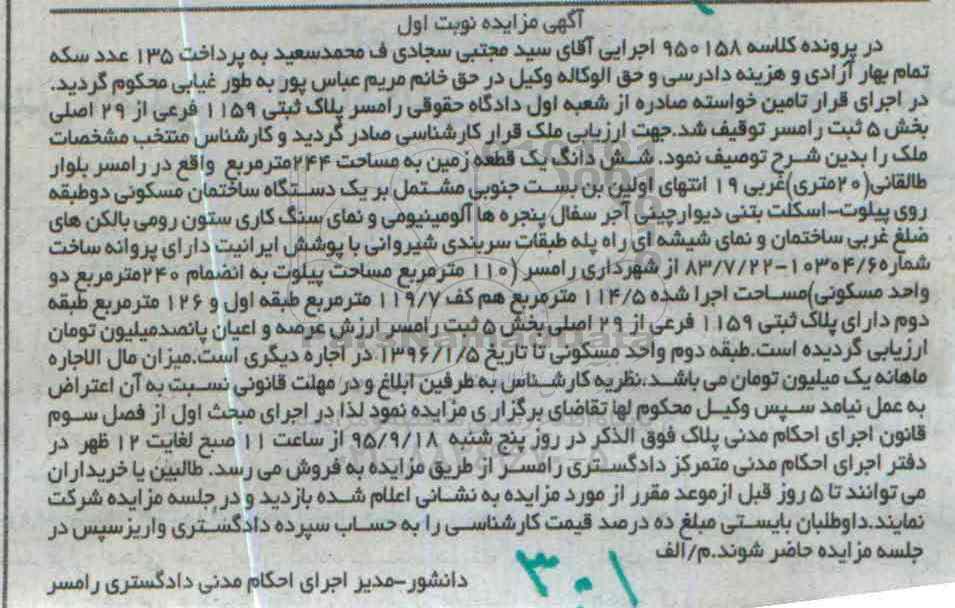 آگهی مزایده نوبت اول
در پرونده کلاسه ۹۵۰۱۵۸ اجرایی آقای سید مجتبی سجادی ف محمدسعید به پرداخت ۱۳۵ عدد سکه
تمام بهار آزادی و هزینه دادرسی و حق الوکاله وکیل در حق خانم مریم عباس پور به طور غیابی محکوم گردید.
در اجرای قرار تامین خواسته صادره از شعبه اول دادگاه حقوقی رامسر پلاک ثبتی ۱۱۵۹ فرعی از ۲۹ اصلی
بخش ۵ ثبت رامسر توقیف شد.جهت ارزیابی ملک قرار کارشناسی صادر گردید و کارشناس منتخب مشخصات
ملک را بدین شرح توصیف نمود. شش دانگ یک قطعه زمین به مساحت ۲۴۴مترمربع واقع در رامسر بلوار
طالقانی(۲۰متری)غربی ۱۹ انتهای اولین بن بست جنوبی مشتمل بر یک دستگاه ساختمان مسکونی دوطبقه
روی پیلوت-اسکلت بتنی دیوارچینی آجر سفال پنجره ها آلومینیومی و نمای سنگ کاری ستون رومی بالکن های
ضلع غربی ساختمان و نمای شیشه ای راه پله طبقات سربندی شیروانی با پوشش ایرانیت دارای پروانه ساخت
شماره۱۰۳۰۴/۶-۸۳/۷/۲۲ از شهرداری رامسر (۱۱۰ مترمربع مساحت پیلوت به انضمام ۲۴۰مترمربع دو
واحد مسکونی)مساحت اجرا شده ۱۱۴/۵ مترمربع هم کف ۱۱۹/۷ مترمربع طبقه اول و ۱۲۶ مترمربع طبقه
دوم دارای پلاک ثبتی ۱۱۵۹ فرعی از ۲۹ اصلی بخش ۵ ثبت رامسر ارزش عرصه و اعیان پانصدمیلیون تومان
ارزیابی گردیده است.طبقه دوم واحد مسکونی تا تاریخ ۱۳۹۶/۱/۵ در اجاره دیگری است.میزان مال الاجاره
ماهانه یک میلیون تومان می باشد.نظریه کارشناس به طرفین ابلاغ و در مهلت قانونی نسبت به آن اعتراض
به عمل نیامد سپس وکیل محکوم لها تقاضای برگزاری مزایده نمود لذا در اجرای مبحث اول از فصل سوم
قانون اجرای احکام مدنی پلاک فوق الذکر در روز پنج شنبه ۹۵/۹/۱۸ از ساعت ۱۱ صبح لغایت ۱۲ ظهر در
دفتر اجرای احکام مدنی متمرکز دادگستری رامسر از طریق مزایده به فروش می رسد. طالبین یا خریداران
می توانند تا ۵ روز قبل ازموعد مقرر از مورد مزایده به نشانی اعلام شده بازدید و در جلسه مزایده شرکت
نمایند.داوطلبان بایستی مبلغ ده درصد قیمت کارشناسی را به حساب سپرده دادگستری واریزسپس در
جلسه مزایده حاضر شوند.م/الف
دانشور-مدیر اجرای احکام مدنی دادگستری رامسر
۳۰۱
ParsNamadData